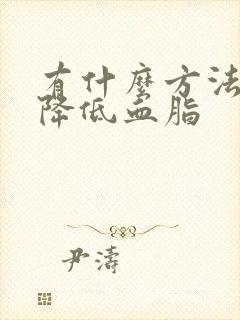 有什麼方法
降低血脂
尹濤